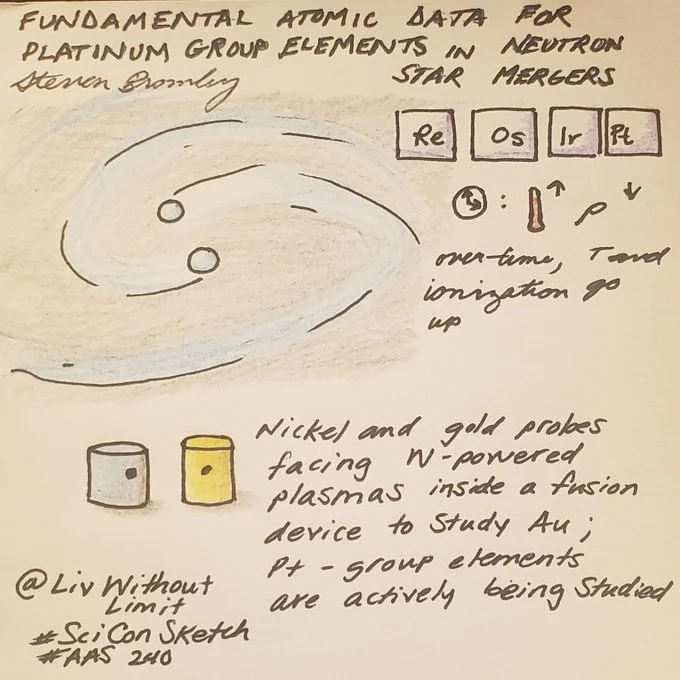 FUNDAMENTAL ATOMIC DATA FOR
PLATINUM GROUP ELEMENTS IN NEUTRON
STAR MERGERS
Steven Bromley
Re Os Ir Pt
: ρ
over-time, T and
ionization go
up
Nickel and gold probes
facing N-powered
plasmas inside a fusion
device to Study Au;
Pt-group elements
are actively being Studied
@LivWithout
Limit
#SciConSketch
#AAS 240